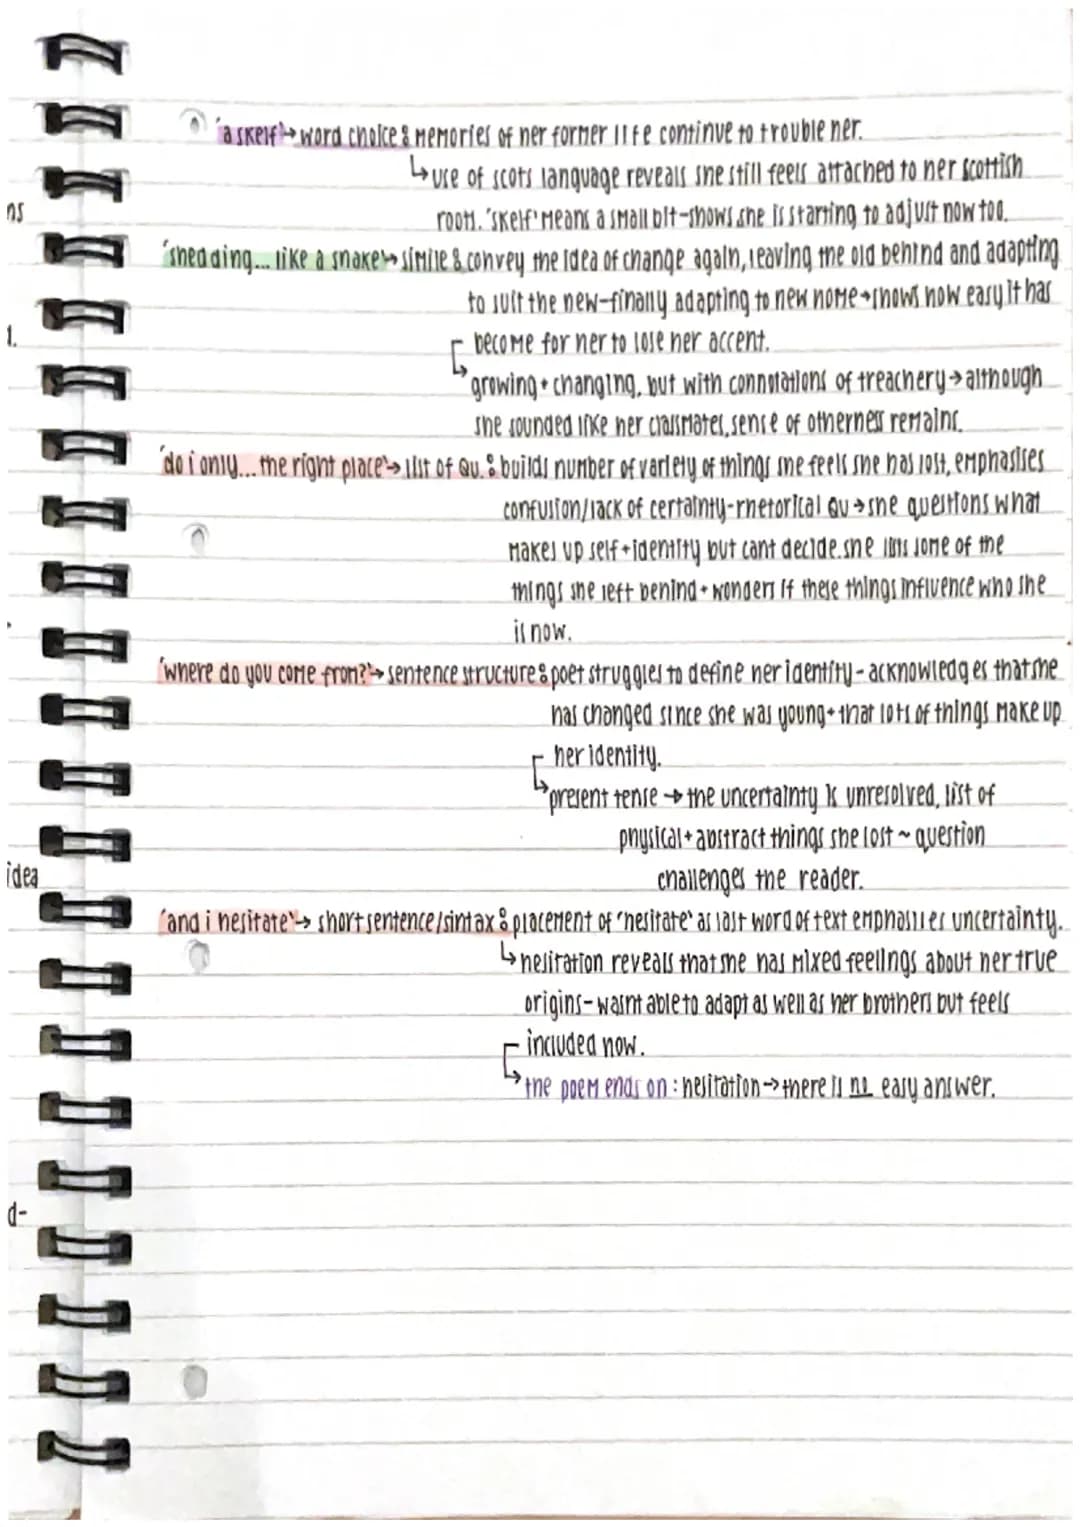 'a skelf' → word choice : memories of her former life continue to trouble her.
↳ use of scots language reveals she still feels attached to her scottish
roots. 'skelf' means a small bit - shows she is starting to adjust now too.
ns
'shedding... like a snake' → simile : convey the idea of change again, leaving the old behind and adapting
to suit the new - finally adapting to new home → shows how easy it has
1.
become for her to lose her accent.
↳ growing + changing, but with connotations of treachery → although
she sounded like her classmates, sense of otherness remains.
'do i only... the right place' → list of Qu. : builds number of variety of things she feels she has lost, emphasises
confusion/lack of certainty - rhetorical Qu → she questions what
makes up self + identity but cant decide. she lists some of the
things she left behind + wonders if these things influence who she
is now.
'where do you come from?' → sentence structure : poet struggles to define her identity - acknowledges that she
has changed since she was young + that lots of things make up
her identity.
↳ present tense → the uncertainty is unresolved, list of
physical + abstract things she lost ~ question
idea
challenges the reader.
'and i hesitate' → short sentence/sintax : placement of 'hesitate' as last word of text emphasises uncertainty.
↳ hesitation reveals that she has mixed feelings about her true
origins - wasnt able to adapt as well as her brothers but feels
included now.
↳ the poem ends on : hesitation → there is no easy answer.
d-